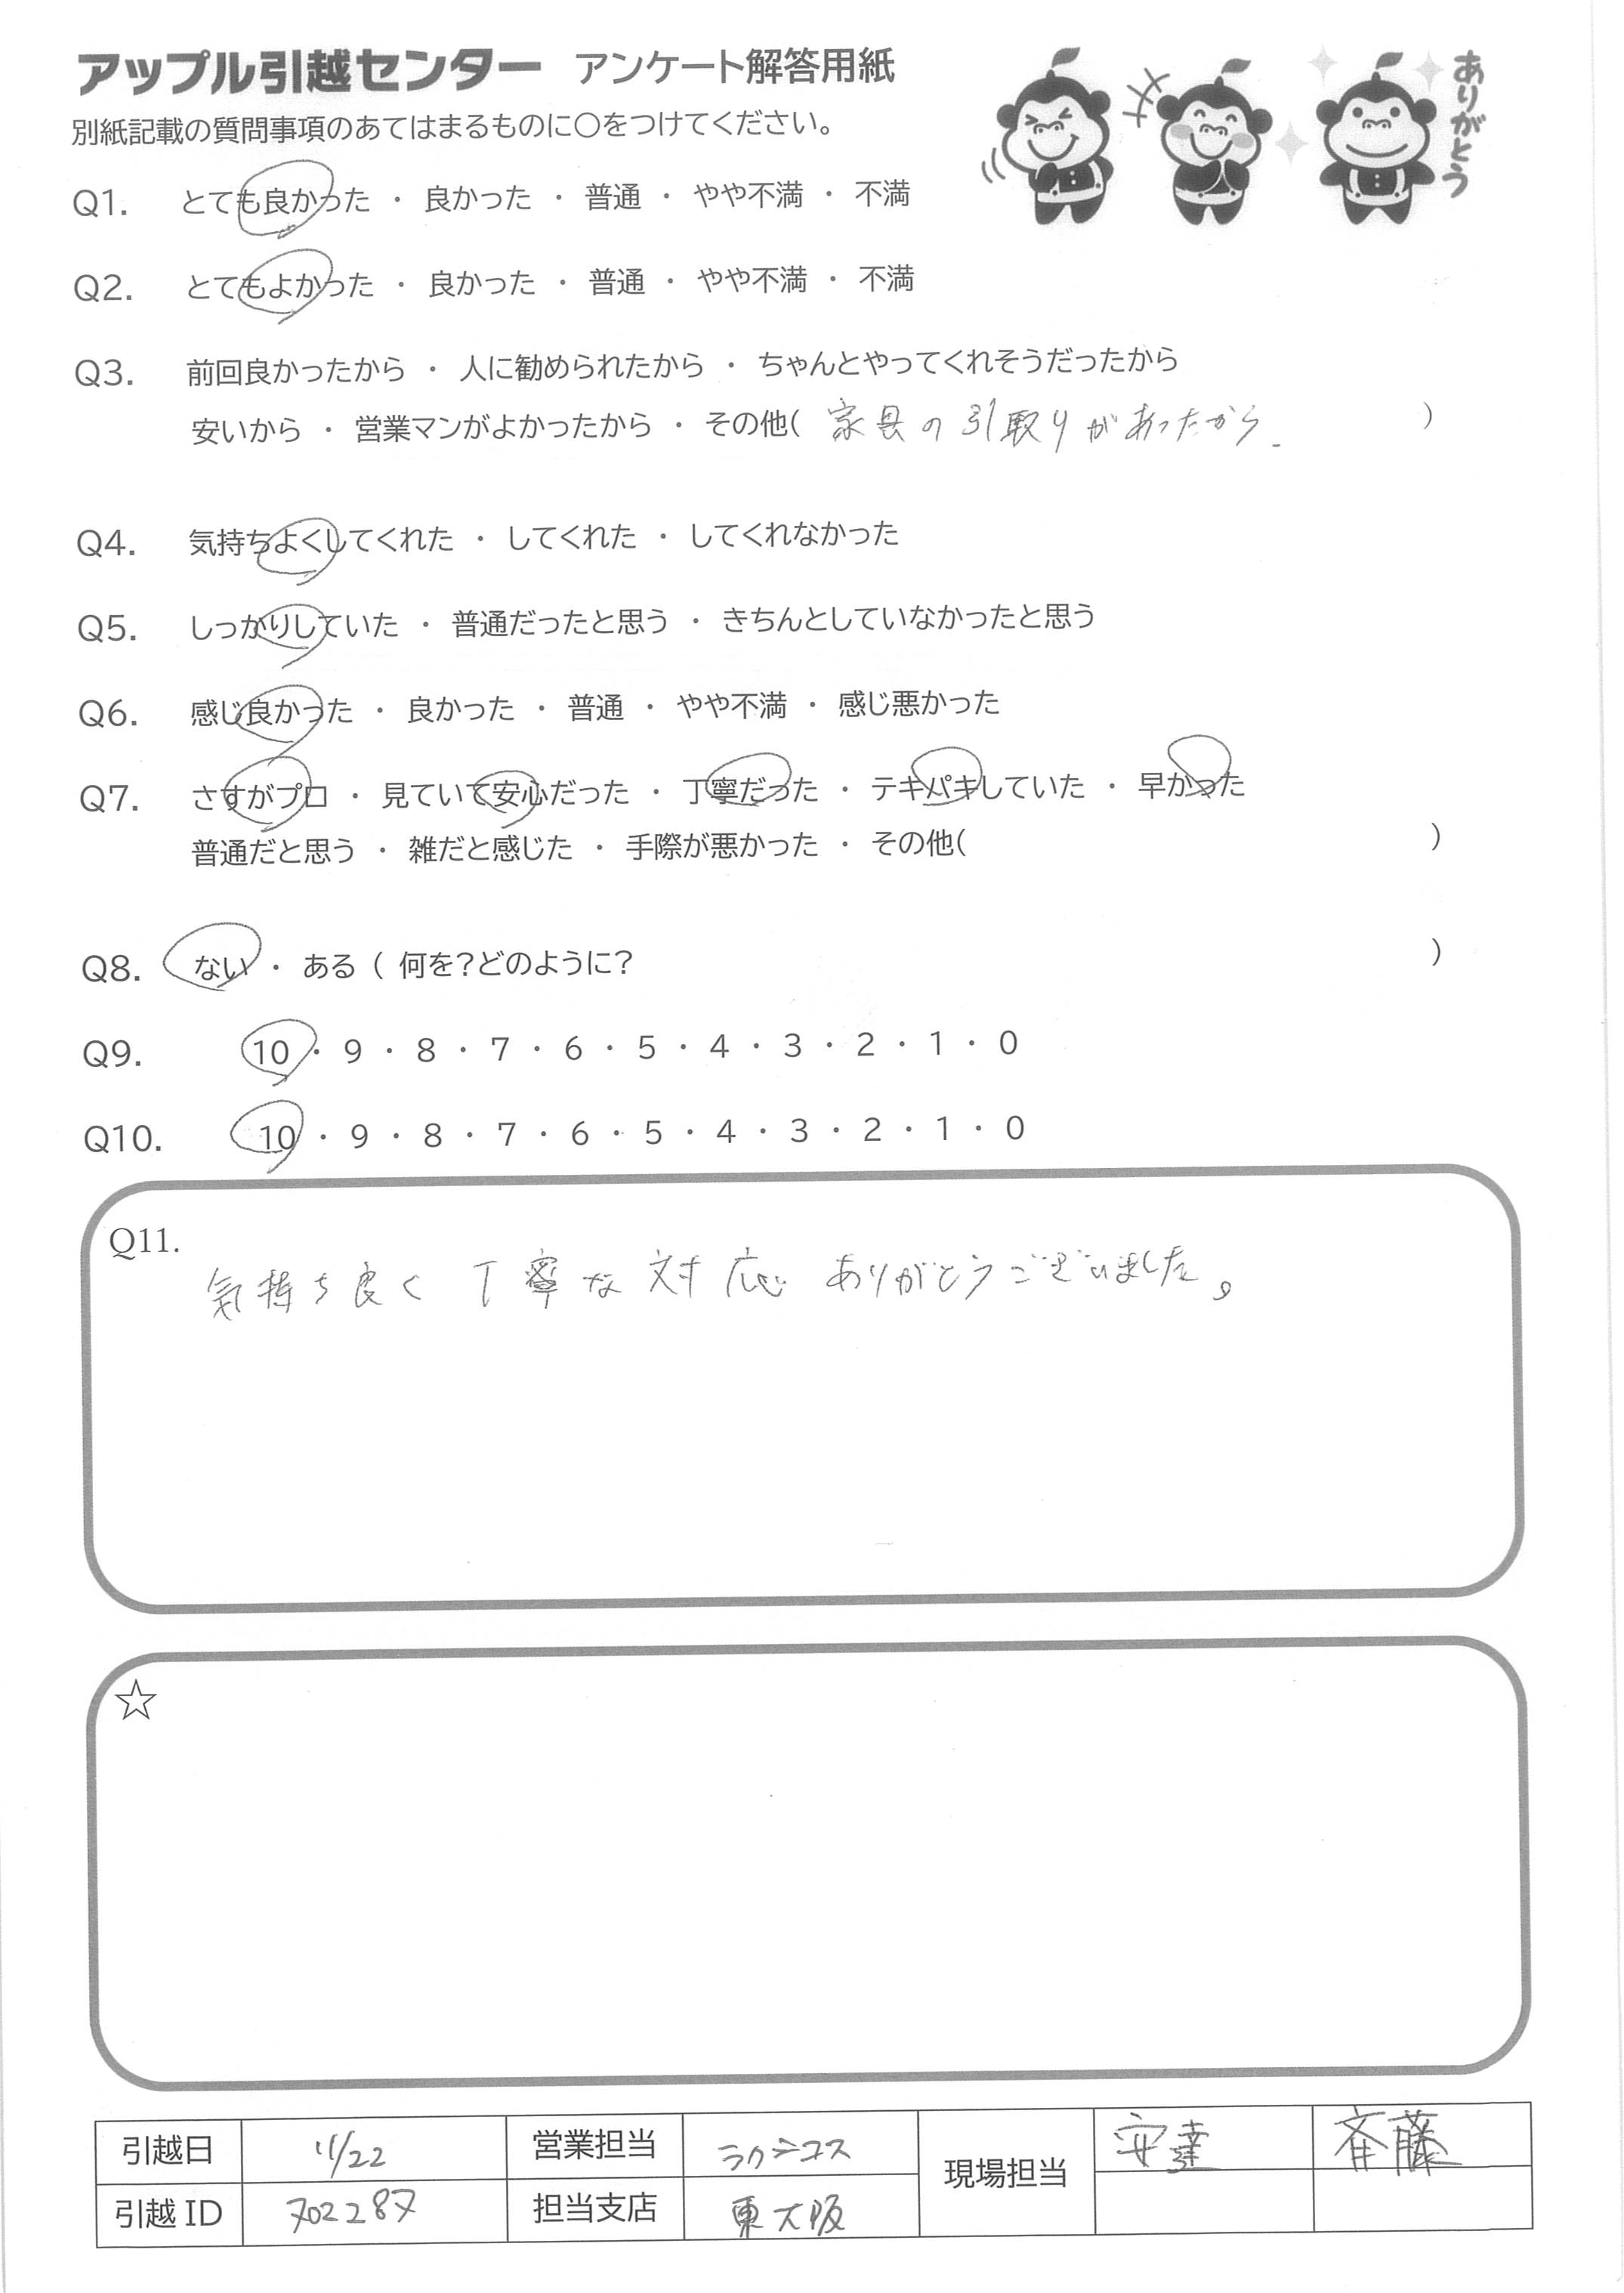 アップル引越センター アンケート解答用紙
ありがとう
別紙記載の質問事項のあてはまるものに○をつけてください。
Q1. とても良かった ・ 良かった ・ 普通 ・ やや不満 ・ 不満
Q2. とてもよかった ・ 良かった ・ 普通 ・ やや不満 ・ 不満
Q3. 前回良かったから ・ 人に勧められたから ・ ちゃんとやってくれそうだったから
安いから ・ 営業マンがよかったから ・ その他( 家具の引取りがあったから. )
Q4. 気持ちよくしてくれた ・ してくれた ・ してくれなかった
Q5. しっかりしていた ・ 普通だったと思う ・ きちんとしていなかったと思う
Q6. 感じ良かった ・ 良かった ・ 普通 ・ やや不満 ・ 感じ悪かった
Q7. さすがプロ ・ 見ていて安心だった ・ 丁寧だった ・ テキパキしていた ・ 早かった
普通だと思う ・ 雑だと感じた ・ 手際が悪かった ・ その他( )
Q8. ない ・ ある ( 何を?どのように? )
Q9. 10 ・ 9 ・ 8 ・ 7 ・ 6 ・ 5 ・ 4 ・ 3 ・ 2 ・ 1 ・ 0
Q10. 10 ・ 9 ・ 8 ・ 7 ・ 6 ・ 5 ・ 4 ・ 3 ・ 2 ・ 1 ・ 0
Q11.
気持ち良く 丁寧な対応 ありがとうございました。
☆
引越日 11/22 営業担当 ラクニコス 現場担当 安達 斉藤
引越ID 702287 担当支店 東大阪